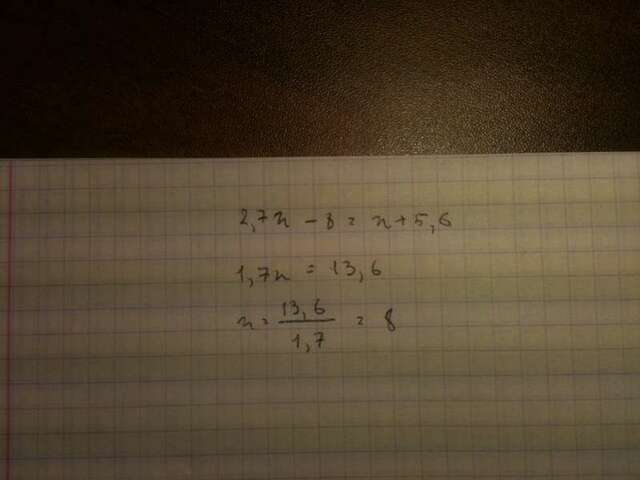 2,7x - 8 = x + 5,6
1,7x = 13,6
x = 13,6 / 1,7 = 8